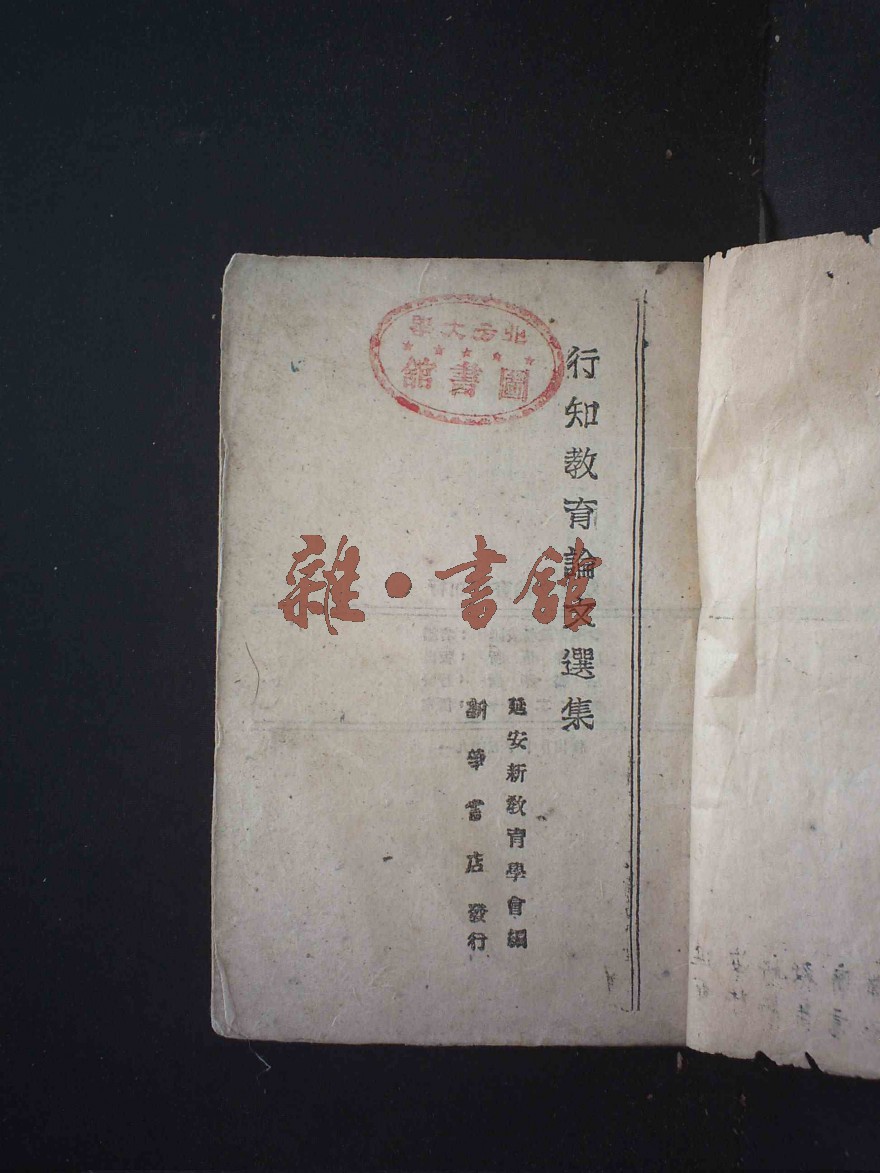 北方大學
圖書館
行知教育論文選集
延安新教育學會編
新華書店發行
雜·書館